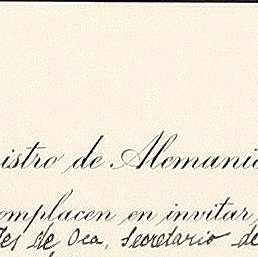 istro de Alemania
omplacen en invitar
es de Oca, Secretario de